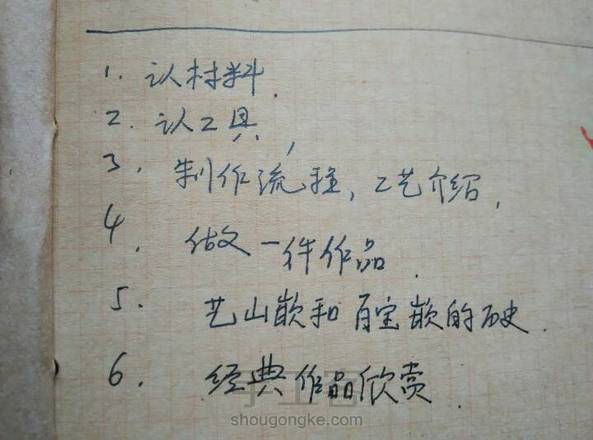 1. 认材料.
2. 认工具,
3. 制作流程, 工艺介绍,
4. 做一件作品.
5. 艺山嵌和百宝嵌的历史.
6. 经典作品欣赏
shougongke.com